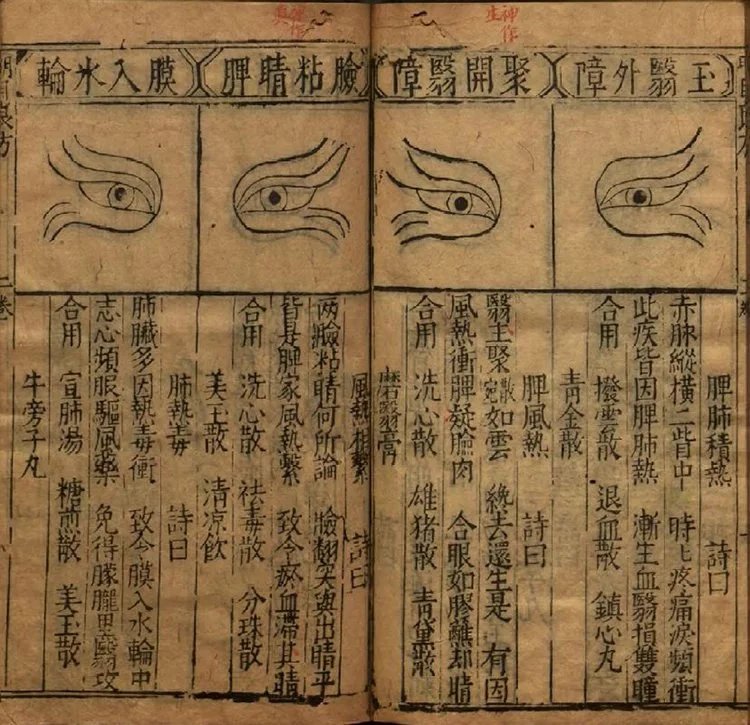 玉翳外障
脾肺積熱 詩曰
赤脉縱橫二眥中 時〻疼痛淚頻衝
此疾皆因脾肺熱 漸生血翳損雙瞳
合用 撥雲散 退血散 鎮心丸
青金散
聚開翳障
脾風熱 詩曰
翳玉聚散宛如雲 絶去還生是有因
風熱衝脾疑臉肉 合眼如膠蘸却睛
合用 洗心散 雄猪散 青黛散
磨翳膏
臉粘睛脾
風熱相繫 詩曰
两臉粘睛何所論 臉翻突與出睛平
皆是脾家風熱繫 致令瘀血滯其睛
合用 洗心散 袪毒散 分珠散
美玉散 清凉飲
膜入水輪
肺熱毒 詩曰
肺臟多因熱毒衝 致令膜入水輪中
志心頻服驅風藥 免得朦朧黑翳攻
合用 宣肺湯 糖煎散 美玉散
牛旁子丸